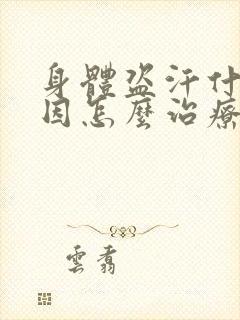 身體盜汗什
因怎麼治療
雲翥